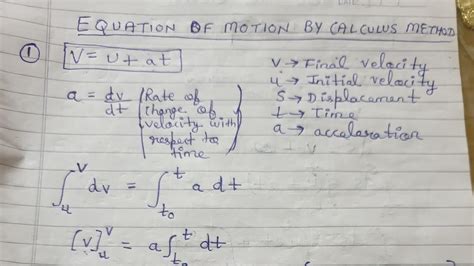 EQUATION OF MOTION BY CALCULUS METHOD
① V = u + at
V → Final velocity
u → Initial velocity
S → Displacement
t → Time
a → acceleration
a = dv/dt (Rate of change of velocity with respect to time)
∫_u^v dv = ∫_{t₀}^t a dt
[v]_u^v = a∫_{t₀}^t dt